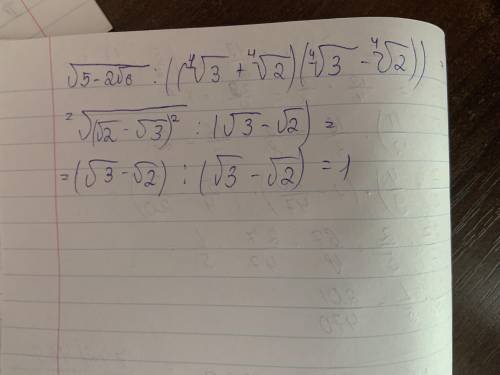 √5-2√6 : ((⁴√3 + ⁴√2)(⁴√3 - ⁴√2)) =
= √(√2 - √3)² : (√3 - √2) =
= (√3 - √2) : (√3 - √2) = 1